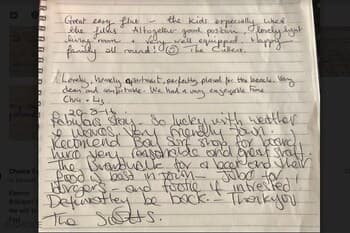 Great cosy flat - the kids especially liked
the films! Altogether good position, lovely light
living room + very well equipped. Happy
family all round! The
Lovely, homely apartment, perfectly placed for the beach. Very
clean and comfortable. We had a very enjoyable time
Chris + Liz
Fabulous stay - So lucky with weather
+ waves. Very friendly town.
Recommend Bay Surf shop for board
hire very reasonable and great staff
The for a beer and
food is best in town - for
Burgers - and footie if intrested
Definatley be back - Thankyou
The